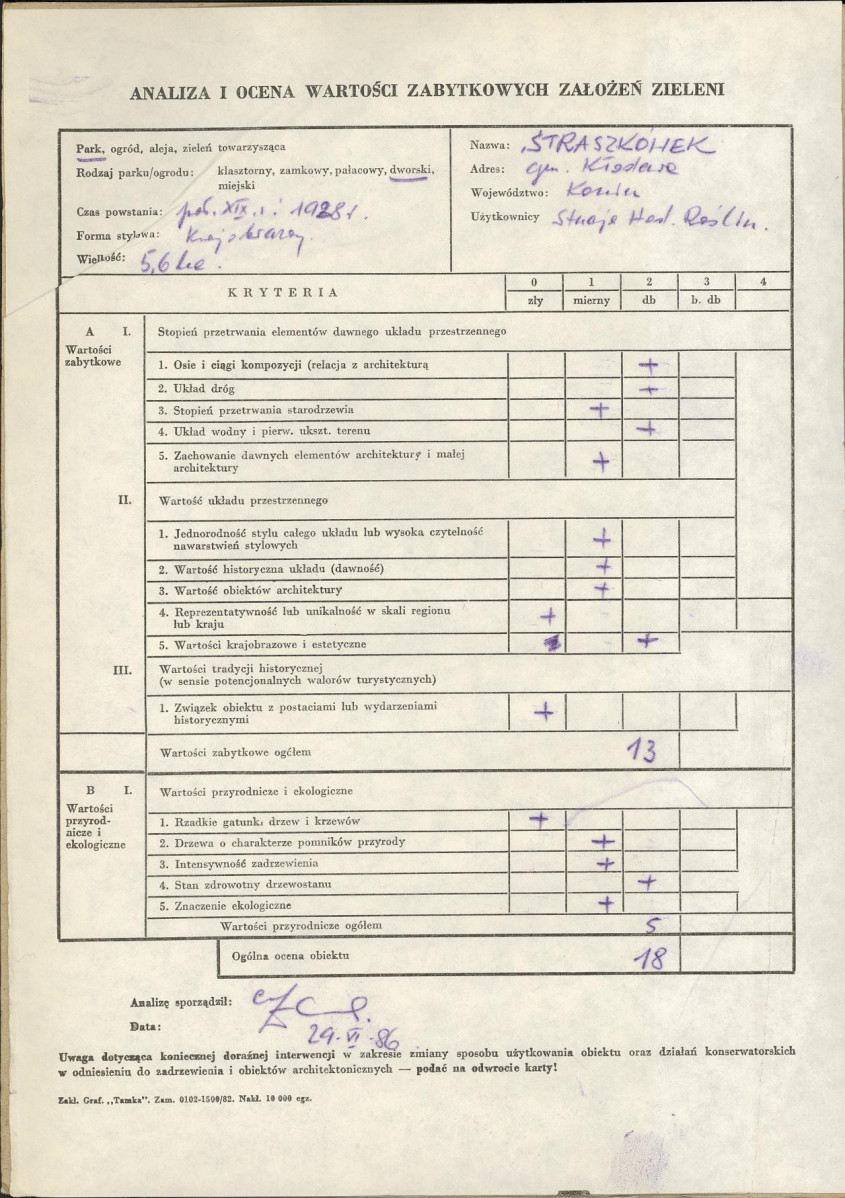 ANALIZA I OCENA WARTOŚCI ZABYTKOWYCH ZAŁOŻEŃ ZIELENI
Park, ogród, aleja, zieleń towarzysząca
Rodzaj parku/ogrodu: klasztorny, zamkowy, pałacowy, dworski,
miejski
Czas powstania: poł. XIX, i 1928 r.
Forma stylowa: Krajobrazowy
Wielkość: 5,6 ha.
Nazwa: STRASZKÓWEK
Adres: gm. Kłodawa
Województwo: Konin
Użytkownicy Stacja Hod. Roślin.
KRYTERIA
0 1 2 3 4
zły mierny db b. db
A I. Stopień przetrwania elementów dawnego układu przestrzennego
Wartości
zabytkowe
1. Osie i ciągi kompozycji (relacja z architekturą +
2. Układ dróg +
3. Stopień przetrwania starodrzewia +
4. Układ wodny i pierw. ukszt. terenu +
5. Zachowanie dawnych elementów architektury i małej
architektury +
II. Wartość układu przestrzennego
1. Jednorodność stylu całego układu lub wysoka czytelność
nawarstwień stylowych +
2. Wartość historyczna układu (dawność) +
3. Wartość obiektów architektury +
4. Reprezentatywność lub unikalność w skali regionu
lub kraju +
5. Wartości krajobrazowe i estetyczne +
III. Wartości tradycji historycznej
(w sensie potencjonalnych walorów turystycznych)
1. Związek obiektu z postaciami lub wydarzeniami
historycznymi +
Wartości zabytkowe ogółem 13
B I. Wartości przyrodnicze i ekologiczne
Wartości
przyrod-
nicze i
ekologiczne
1. Rzadkie gatunki drzew i krzewów +
2. Drzewa o charakterze pomników przyrody +
3. Intensywność zadrzewienia +
4. Stan zdrowotny drzewostanu +
5. Znaczenie ekologiczne +
Wartości przyrodnicze ogółem 5
Ogólna ocena obiektu 18
Analizę sporządził:
Data: 29-VI-86
Uwaga dotycząca koniecznej doraźnej interwencji w zakresie zmiany sposobu użytkowania obiektu oraz działań konserwatorskich
w odniesieniu do zadrzewienia i obiektów architektonicznych — podać na odwrocie karty!
Zakł. Graf. „Tamka". Zam. 0102-1500/82. Nakł. 10 000 egz.